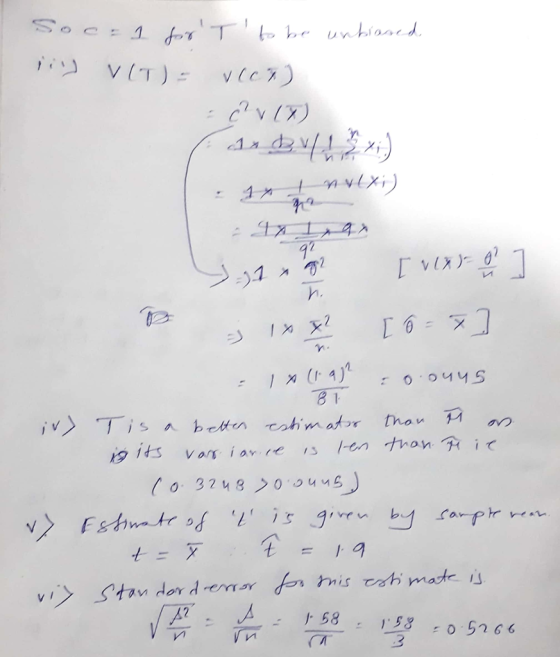 So c = 1 for 'T' to be unbiased.
iii) V(T) = V(c x̄)
= c² V(x̄)
= 1 × V(1/n Σ xi)
= 1 × 1/n² n V(xi)
= 1 × 1/9² × 9 ×
⇒ 1 × θ²/n. [V(x̄) = θ²/n]
⇒ 1 × x̄²/n. [θ̂ = x̄]
= 1 × (1.9)²/81 = 0.0445
iv) T is a better estimator than M̂ as
its variance is less than M̂ ie
(0.3248 > 0.0445)
v) Estimate of 't' is given by sample mean
t = x̄ ∴ t̂ = 1.9
vi) Standard error for this estimate is
√(s²/n) = s/√n = 1.58/√9 = 1.58/3 = 0.5266